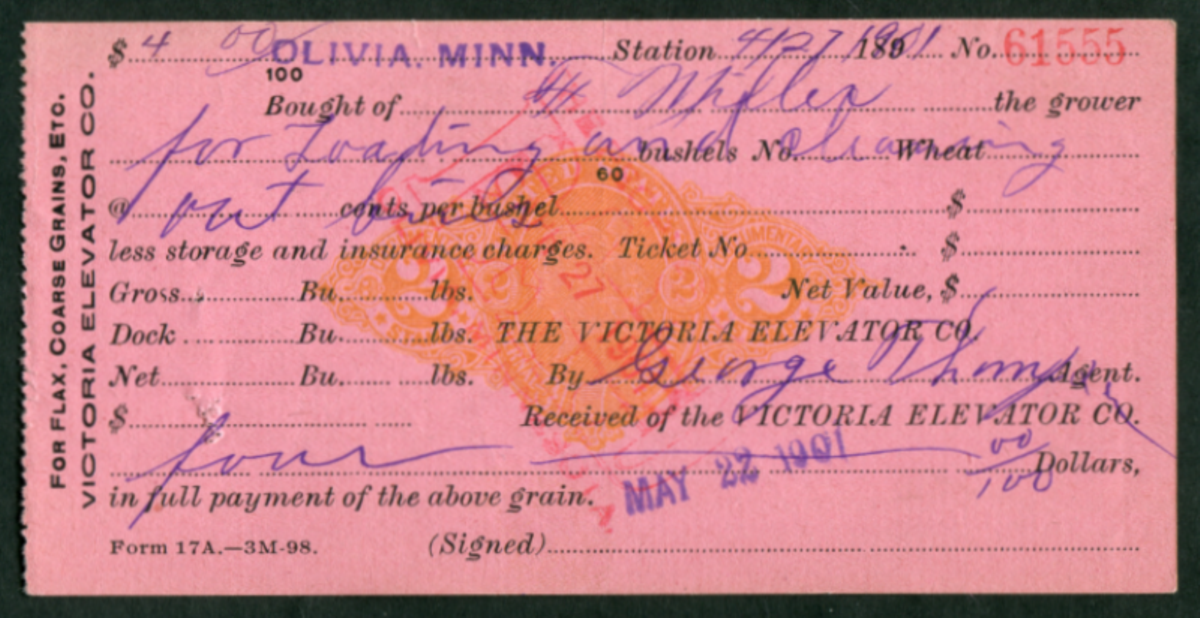 $ 4 00/100 OLIVIA, MINN. Station 4/27 1901 No. 61555
Bought of H Miller the grower
for Loading and bushels No. cleaning Wheat
60
@ out cents per bushel $
less storage and insurance charges. Ticket No. $
Gross Bu. lbs. Net Value, $
Dock Bu. lbs. THE VICTORIA ELEVATOR CO.
Net Bu. lbs. By George Thompson Agent.
$ Received of the VICTORIA ELEVATOR CO.
four 00/100 Dollars,
MAY 22 1901
in full payment of the above grain.
Form 17A.—3M-98. (Signed)
FOR FLAX, COARSE GRAINS, ETC.
VICTORIA ELEVATOR CO.
2 2
27